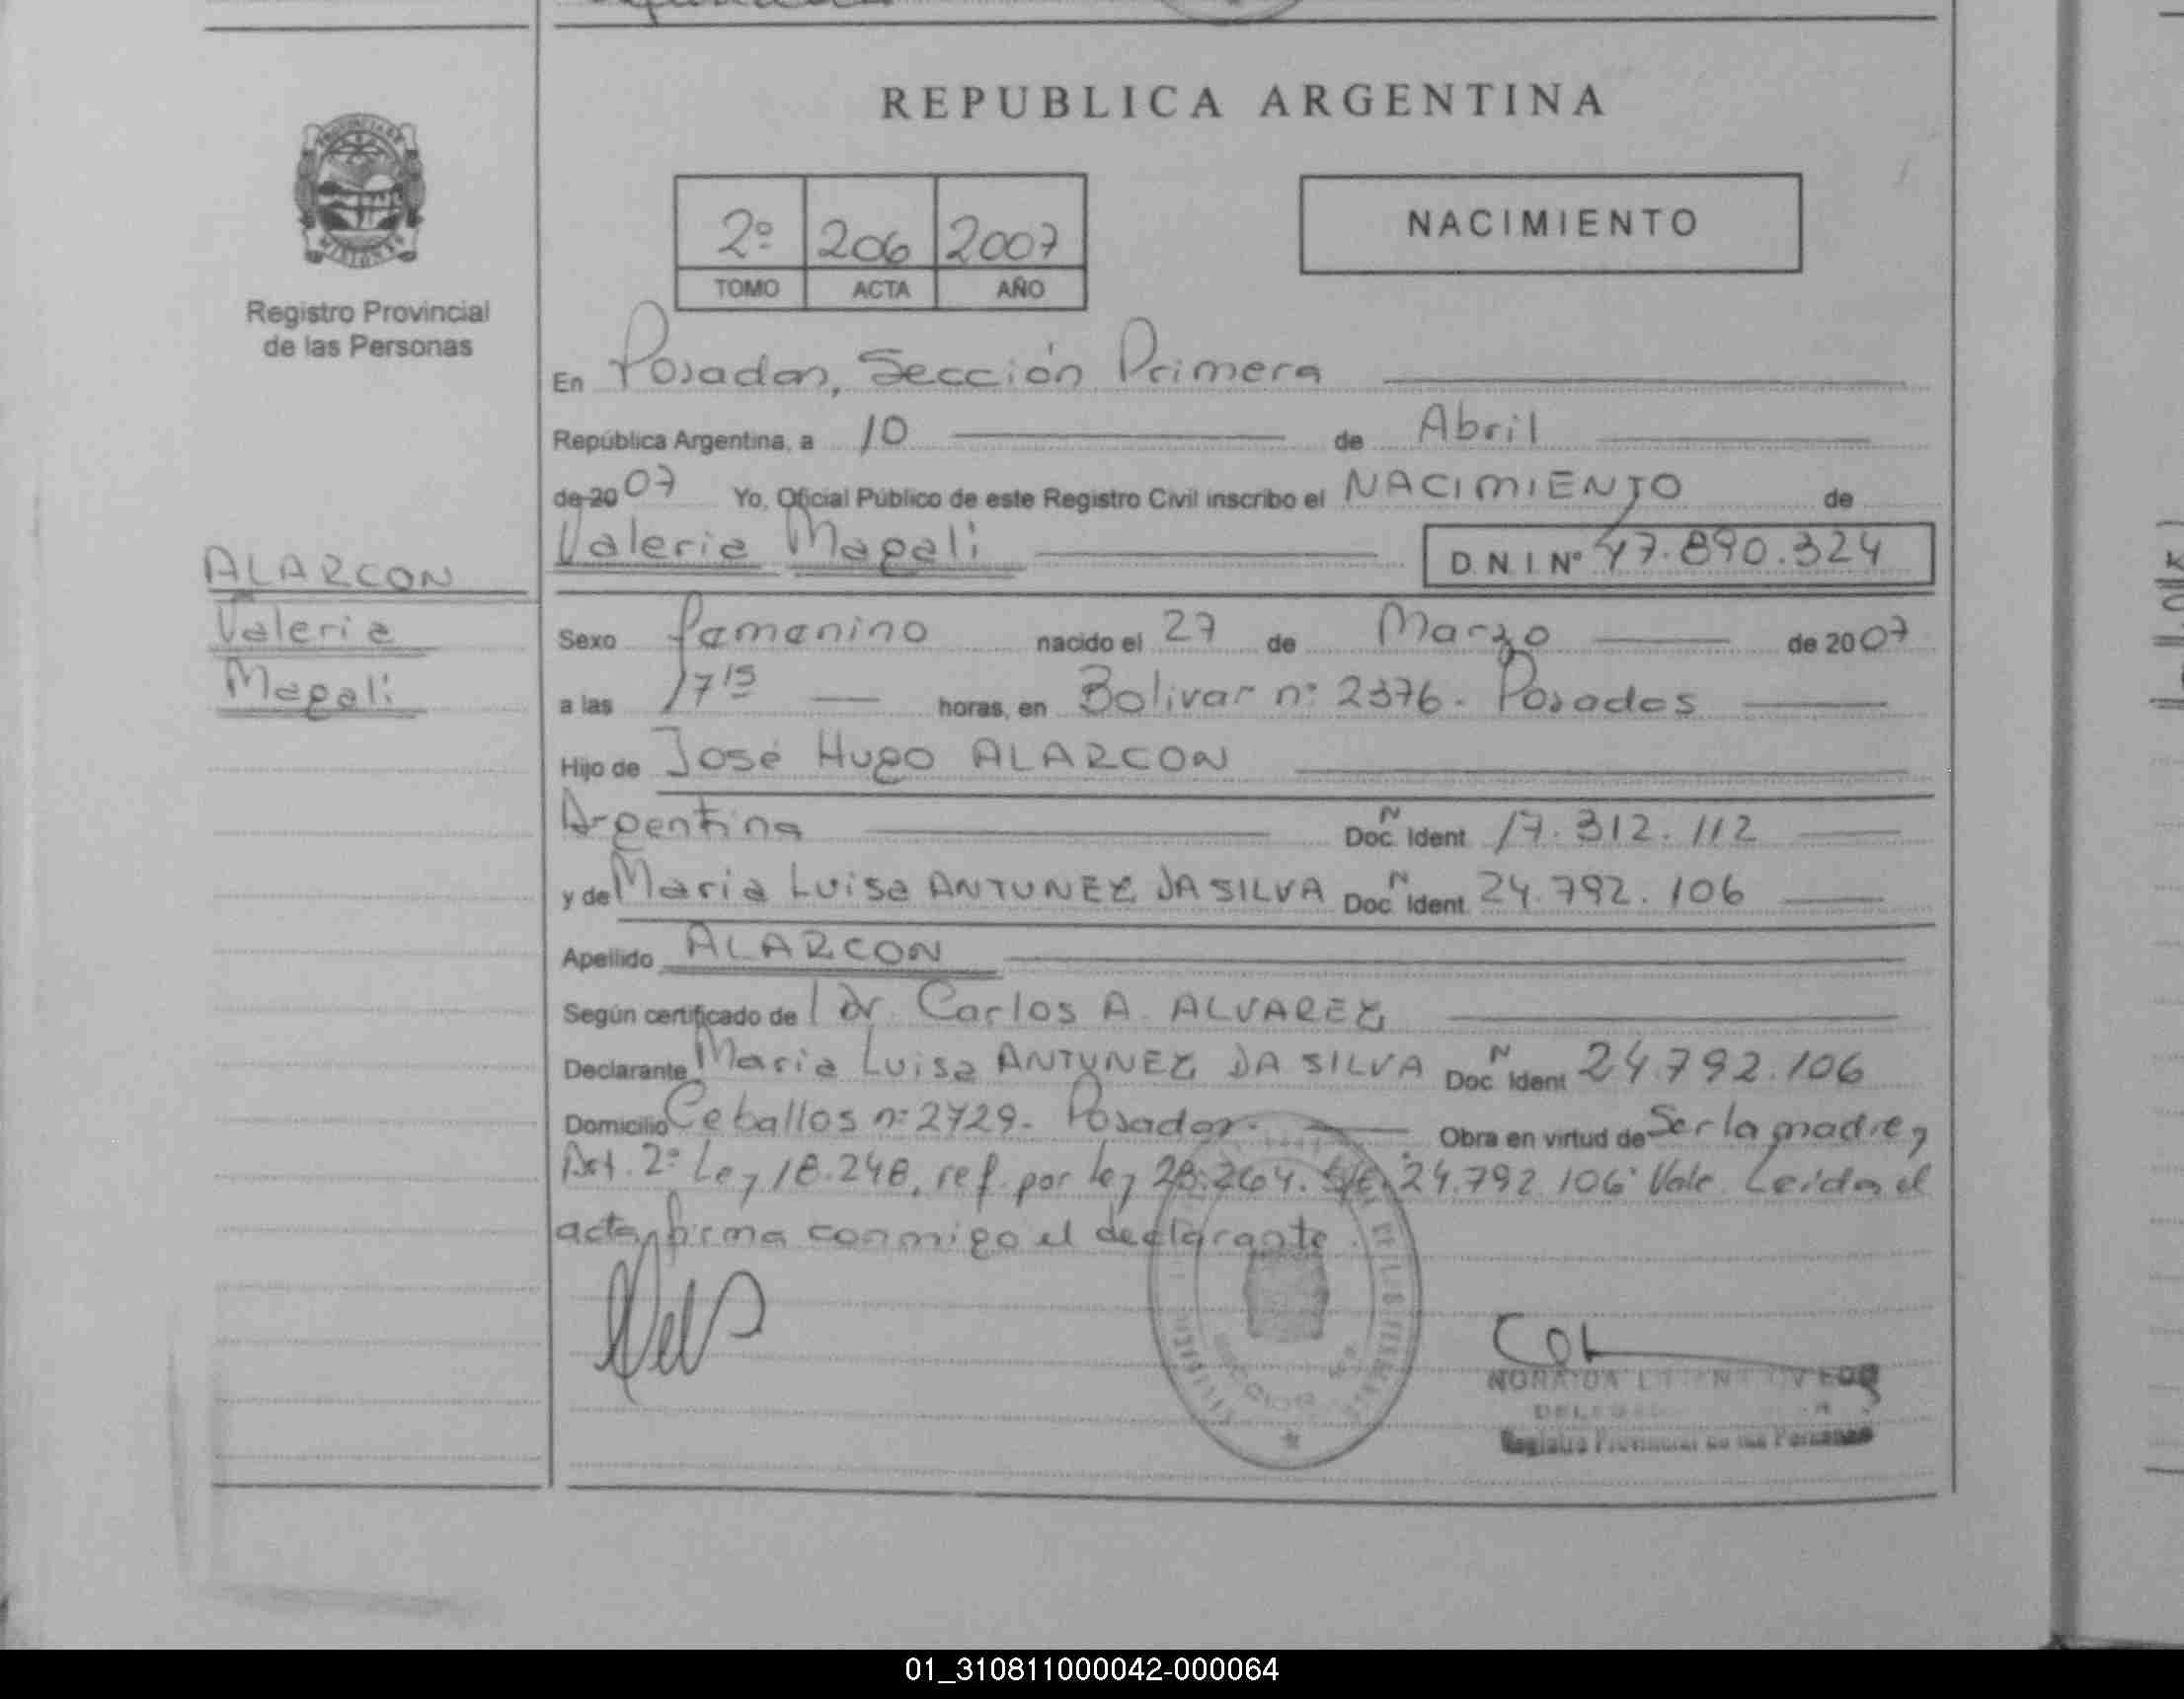 REPUBLICA ARGENTINA
PROVINCIA DE
MISIONES
Registro Provincial
de las Personas
2º 206 2007
TOMO ACTA AÑO
NACIMIENTO
En Posadas, Sección Primera
República Argentina, a 10 de Abril
de 20 07 Yo, Oficial Público de este Registro Civil inscribo el NACIMIENTO de
Valeria Magali D.N.I Nº 47.890.324
ALARCON
Valeria
Magali
Sexo famanino nacido el 27 de Marzo de 2007
a las 17 15 horas, en Bolivar nº 2376. Posadas
Hijo de José Hugo ALARCON
Argentina Doc. Ñ Ident 17.312.112
y de Maria Luisa ANTUNEZ DA SILVA Doc. Ñ Ident. 24.792.106
Apellido ALARCON
Según certificado de Dr. Carlos A. ALVAREZ
Declarante Maria Luisa ANTUNEZ DA SILVA Doc. Ñ Ident 24.792.106
Domicilio Ceballos nº 2729. Posadas. Obra en virtud de Ser la madre y
Art. 2º Ley 18.248, ref. por ley 23.264. S/E: 24.792.106 Vale. Leida el
acta, firma conmigo el declarante.
Registro Provincial de las Personas
01_310811000042-000064